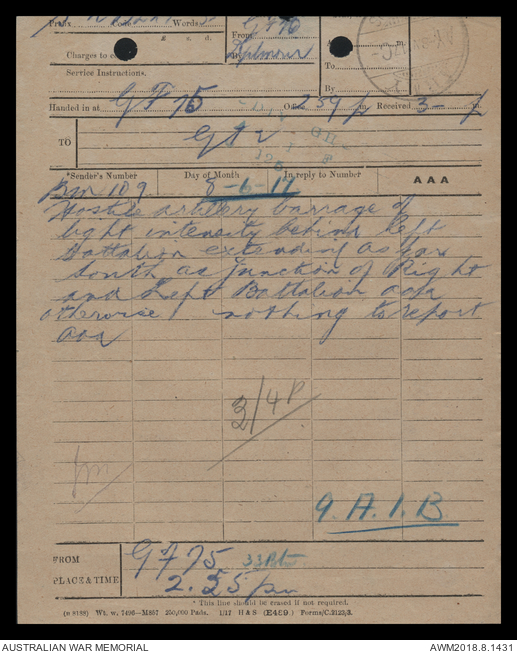 Prefix Code Words
£ s. d.
Charges to
Service Instructions.
To
By
Handed in at G F 75 Office 2 59 p m. Received 3 - p m.
TO
*Sender's Number Day of Month In reply to Number AAA
Bm 109 8-6-17
Hostile artillery barrage of
light intensity behind Left
Battalion extending as far
South as junction of Right
and Left Battalion aaa
otherwise nothing to report
aaa
3/4P
9.A.I.B.
FROM G F 75 33 Btn
PLACE & TIME 2.55 pm
* This line should be erased if not required.
Wt. w. 7496—M857 250,000 Pads. 1/17 H A S (E489.) Forms/C.2123/3.
AUSTRALIAN WAR MEMORIAL AWM2018.8.1431